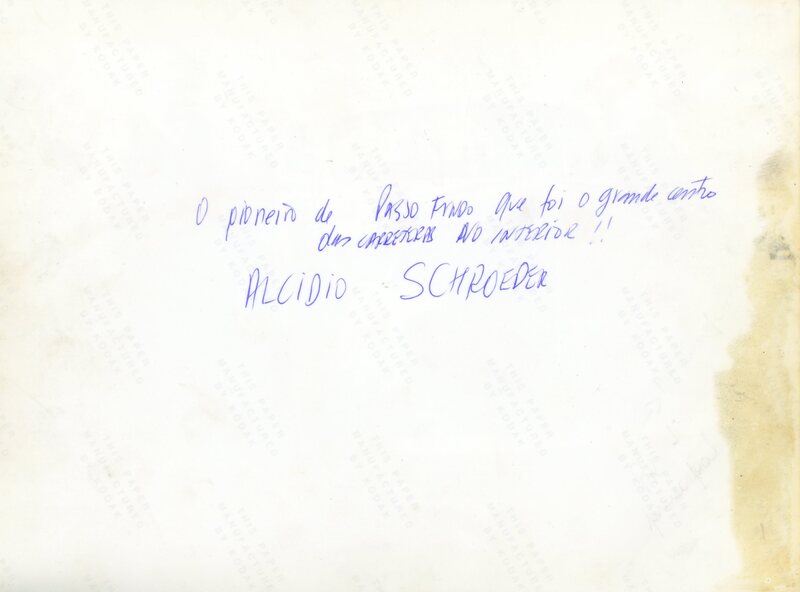 O pioneiro de Passo Fundo que foi o grande centro
das CARRETERAS NO INTERIOR !!
ALCIDIO SCHROEDER
THIS PAPER
MANUFACTURED
BY KODAK